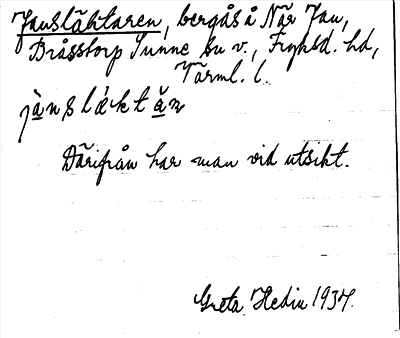 Jansläktaren, bergås å När Jan,
Bråsstorp Sunne sn v., Fryksd. hd,
Värml. l.
jànslǽktăn
Därifrån har man vid utsikt.
Greta Hedin 1934.